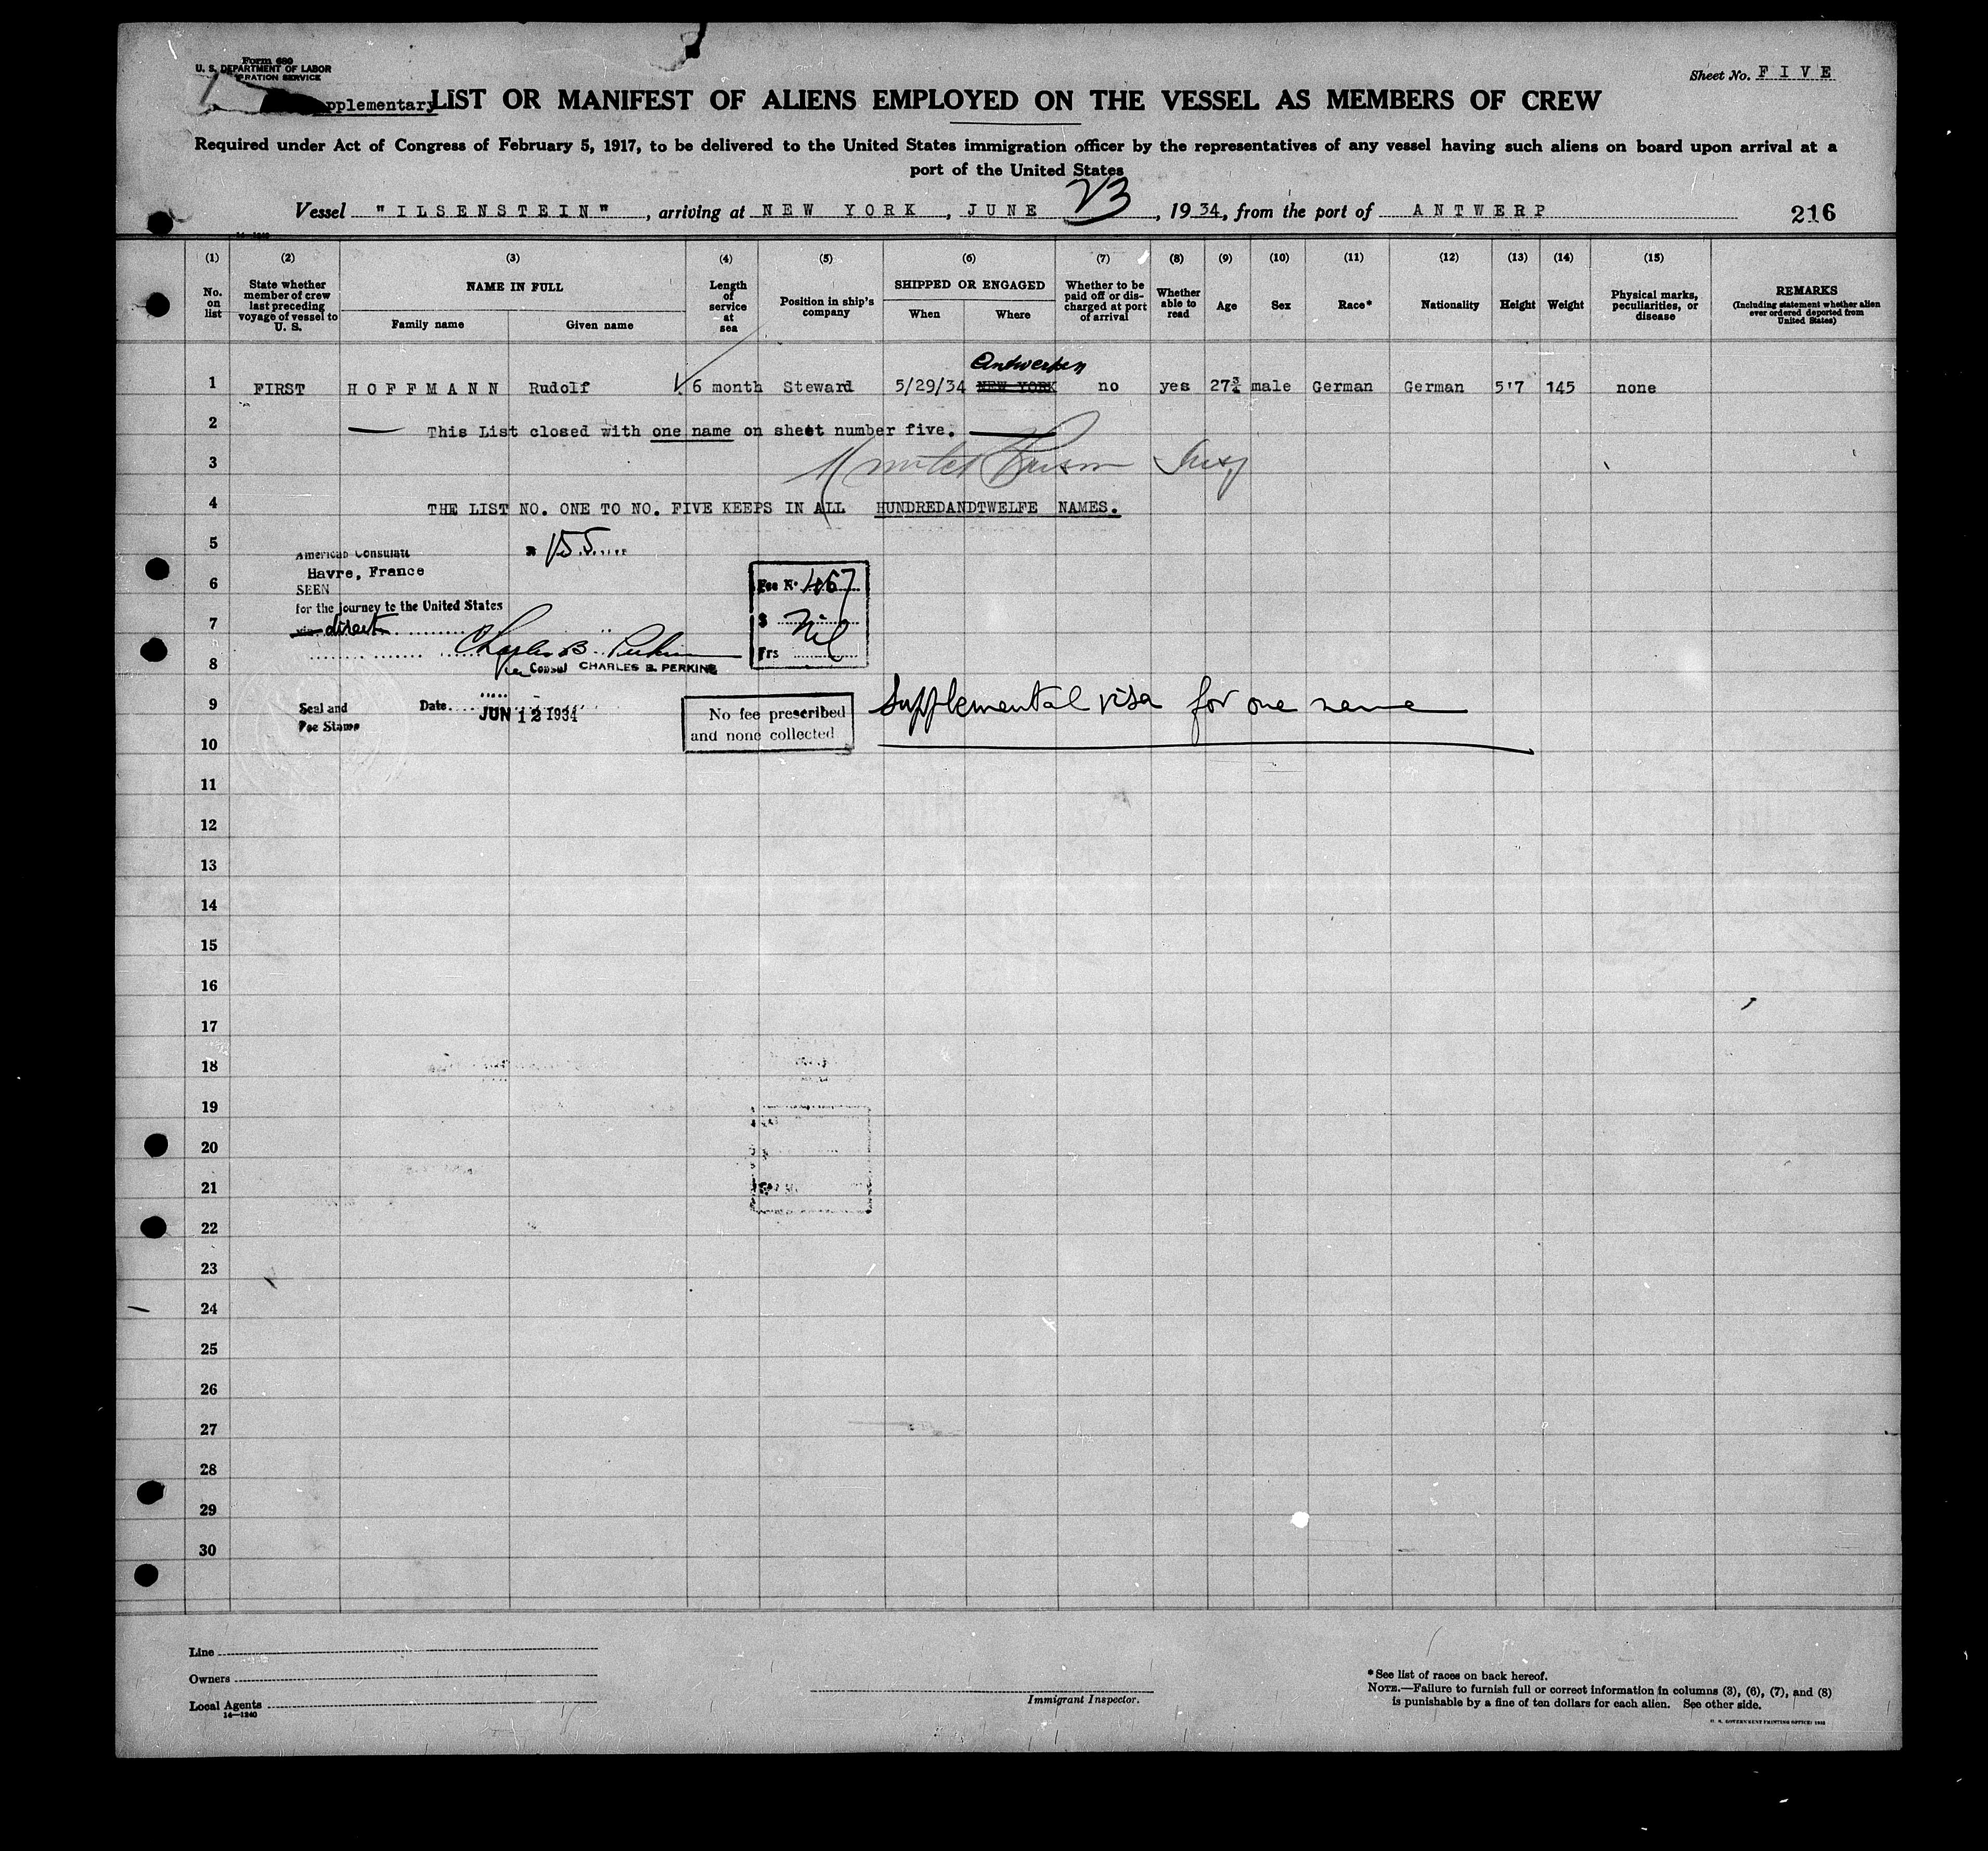 Form 680
U. S. DEPARTMENT OF LABOR
Sheet No. F I V E
LIST OR MANIFEST OF ALIENS EMPLOYED ON THE VESSEL AS MEMBERS OF CREW
Required under Act of Congress of February 5, 1917, to be delivered to the United States immigration officer by the representatives of any vessel having such aliens on board upon arrival at a
port of the United States
Vessel "I L S E N S T E I N", arriving at N E W Y O R K, J U N E 23, 19 34, from the port of A N T W E R P
216
14—1240
(1) (2) (3) (4) (5) (6) (7) (8) (9) (10) (11) (12) (13) (14) (15)
No. on list
State whether member of crew last preceding voyage of vessel to U. S.
NAME IN FULL
Family name Given name
Length of service at sea
Position in ship's company
SHIPPED OR ENGAGED
When Where
Whether to be paid off or discharged at port of arrival
Whether able to read
Age
Sex
Race*
Nationality
Height
Weight
Physical marks, peculiarities, or disease
REMARKS
(Including statement whether alien ever ordered deported from United States)
Antwerpen
1 FIRST H O F F M A N N Rudolf 6 month Steward 5/29/34 NEW YORK no yes 27¾ male German German 5'7 145 none
2 This List closed with one name on sheet number five.
3
4 THE LIST NO. ONE TO NO. FIVE KEEPS IN ALL HUNDREDANDTWELFE NAMES.
5
American Consulate
155
Havre, France
Fee No. 467
6 SEEN
for the journey to the United States
7 via direct
$ Nil
Charles B. Perkins
Frs
8 Consul CHARLES B. PERKINS
9 Seal and
Fee Stamp
Date JUN 12 1934
No fee prescribed
and none collected
Supplemental visa for one name
10
11
12
13
14
15
16
17
18
19
20
21
22
23
24
25
26
27
28
29
30
Line
Owners
Local Agents
14—1240
Immigrant Inspector.
*See list of races on back hereof.
NOTE.—Failure to furnish full or correct information in columns (3), (6), (7), and (8)
is punishable by a fine of ten dollars for each alien. See other side.
U. S. GOVERNMENT PRINTING OFFICE: 1933